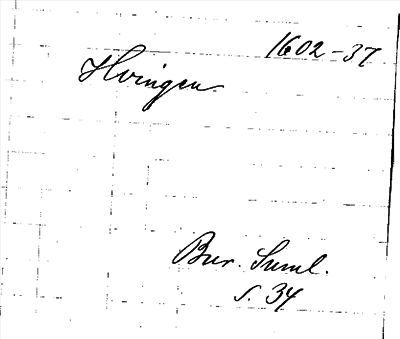 1602-37
Hvingen.
Bur. Suml.
S. 34